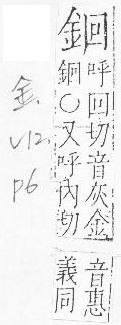 䤧 呼回切音灰金
銅○又呼內切
音惠
義同
金.
V12.
P6